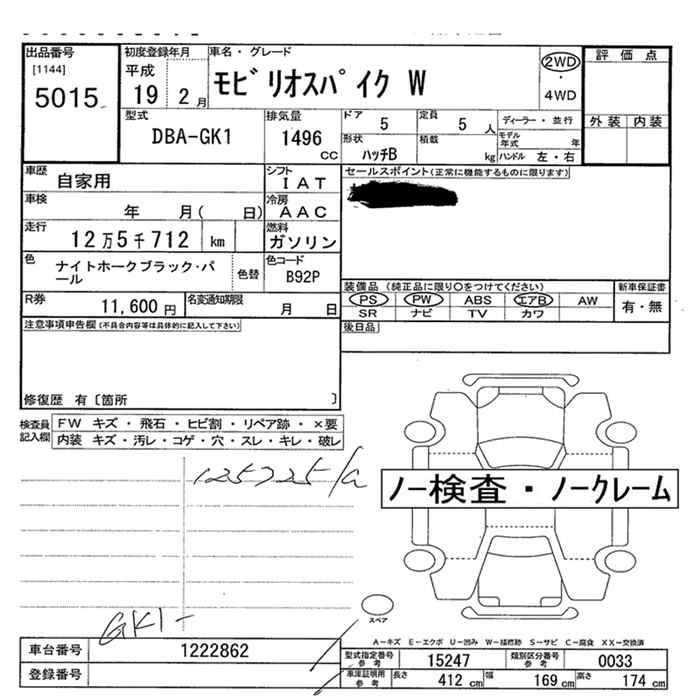 出品番号
[1144]
5015
初度登録年月
平成
19 2月
車名・グレード
モビリオスパイク W
2WD
・
4WD
評価点
外装 内装
型式
DBA-GK1
排気量
1496
cc
ドア
5
定員
5 人
ディーラー・並行
モデル
年式 年
形状
ハッチB
積載
kg
ハンドル 左・右
車歴
自家用
シフト
IAT
セールスポイント(正常に機能するものに限ります)
車検
年 月( 日)
冷房
AAC
走行
12万5千712 km
燃料
ガソリン
色
ナイトホークブラック・パール
色替
色コード
B92P
装備品(純正品に限り○をつけてください)
PS PW ABS エアB AW
SR ナビ TV カワ
新車保証書
有・無
R券
11,600円
名変通知期限
月 日
後日品
注意事項申告欄(不具合内容等は具体的に記入して下さい)
修復歴 有〔箇所 〕
検査員
記入欄
FW キズ・飛石・ヒビ割・リペア跡・×要
内装 キズ・汚レ・コゲ・穴・スレ・キレ・破レ
125725/a
ノー検査・ノークレーム
スペア
GK1-
A-キズ E-エクボ U-凹み W-補修跡 S-サビ C-腐食 XX-交換済
車台番号
1222862
登録番号
型式指定番号
参考
15247
類別区分番号
参考
0033
車庫証明用
参考
長さ
412 cm
幅
169 cm
高さ
174 cm